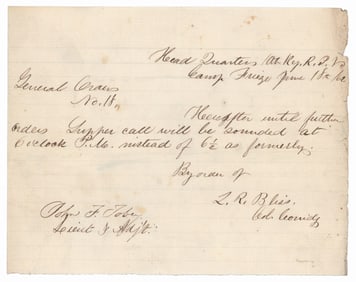 Head Quarters
Camp June 18
General Orders
No. 18.
Hereafter until further
orders Supper call will be sounded at
o'clock P.M. instead of 6½ as formerly.
By order of
Z. R. Bliss.
Col. Comdg
John F. Tobey
Lieut & Adjt.